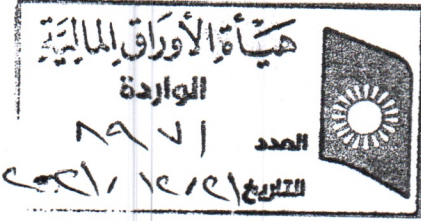 هيأة الأوراق المالية
الواردة
العدد ٨٩٧١
التاريخ ٢٠٢١/١٢/٢١